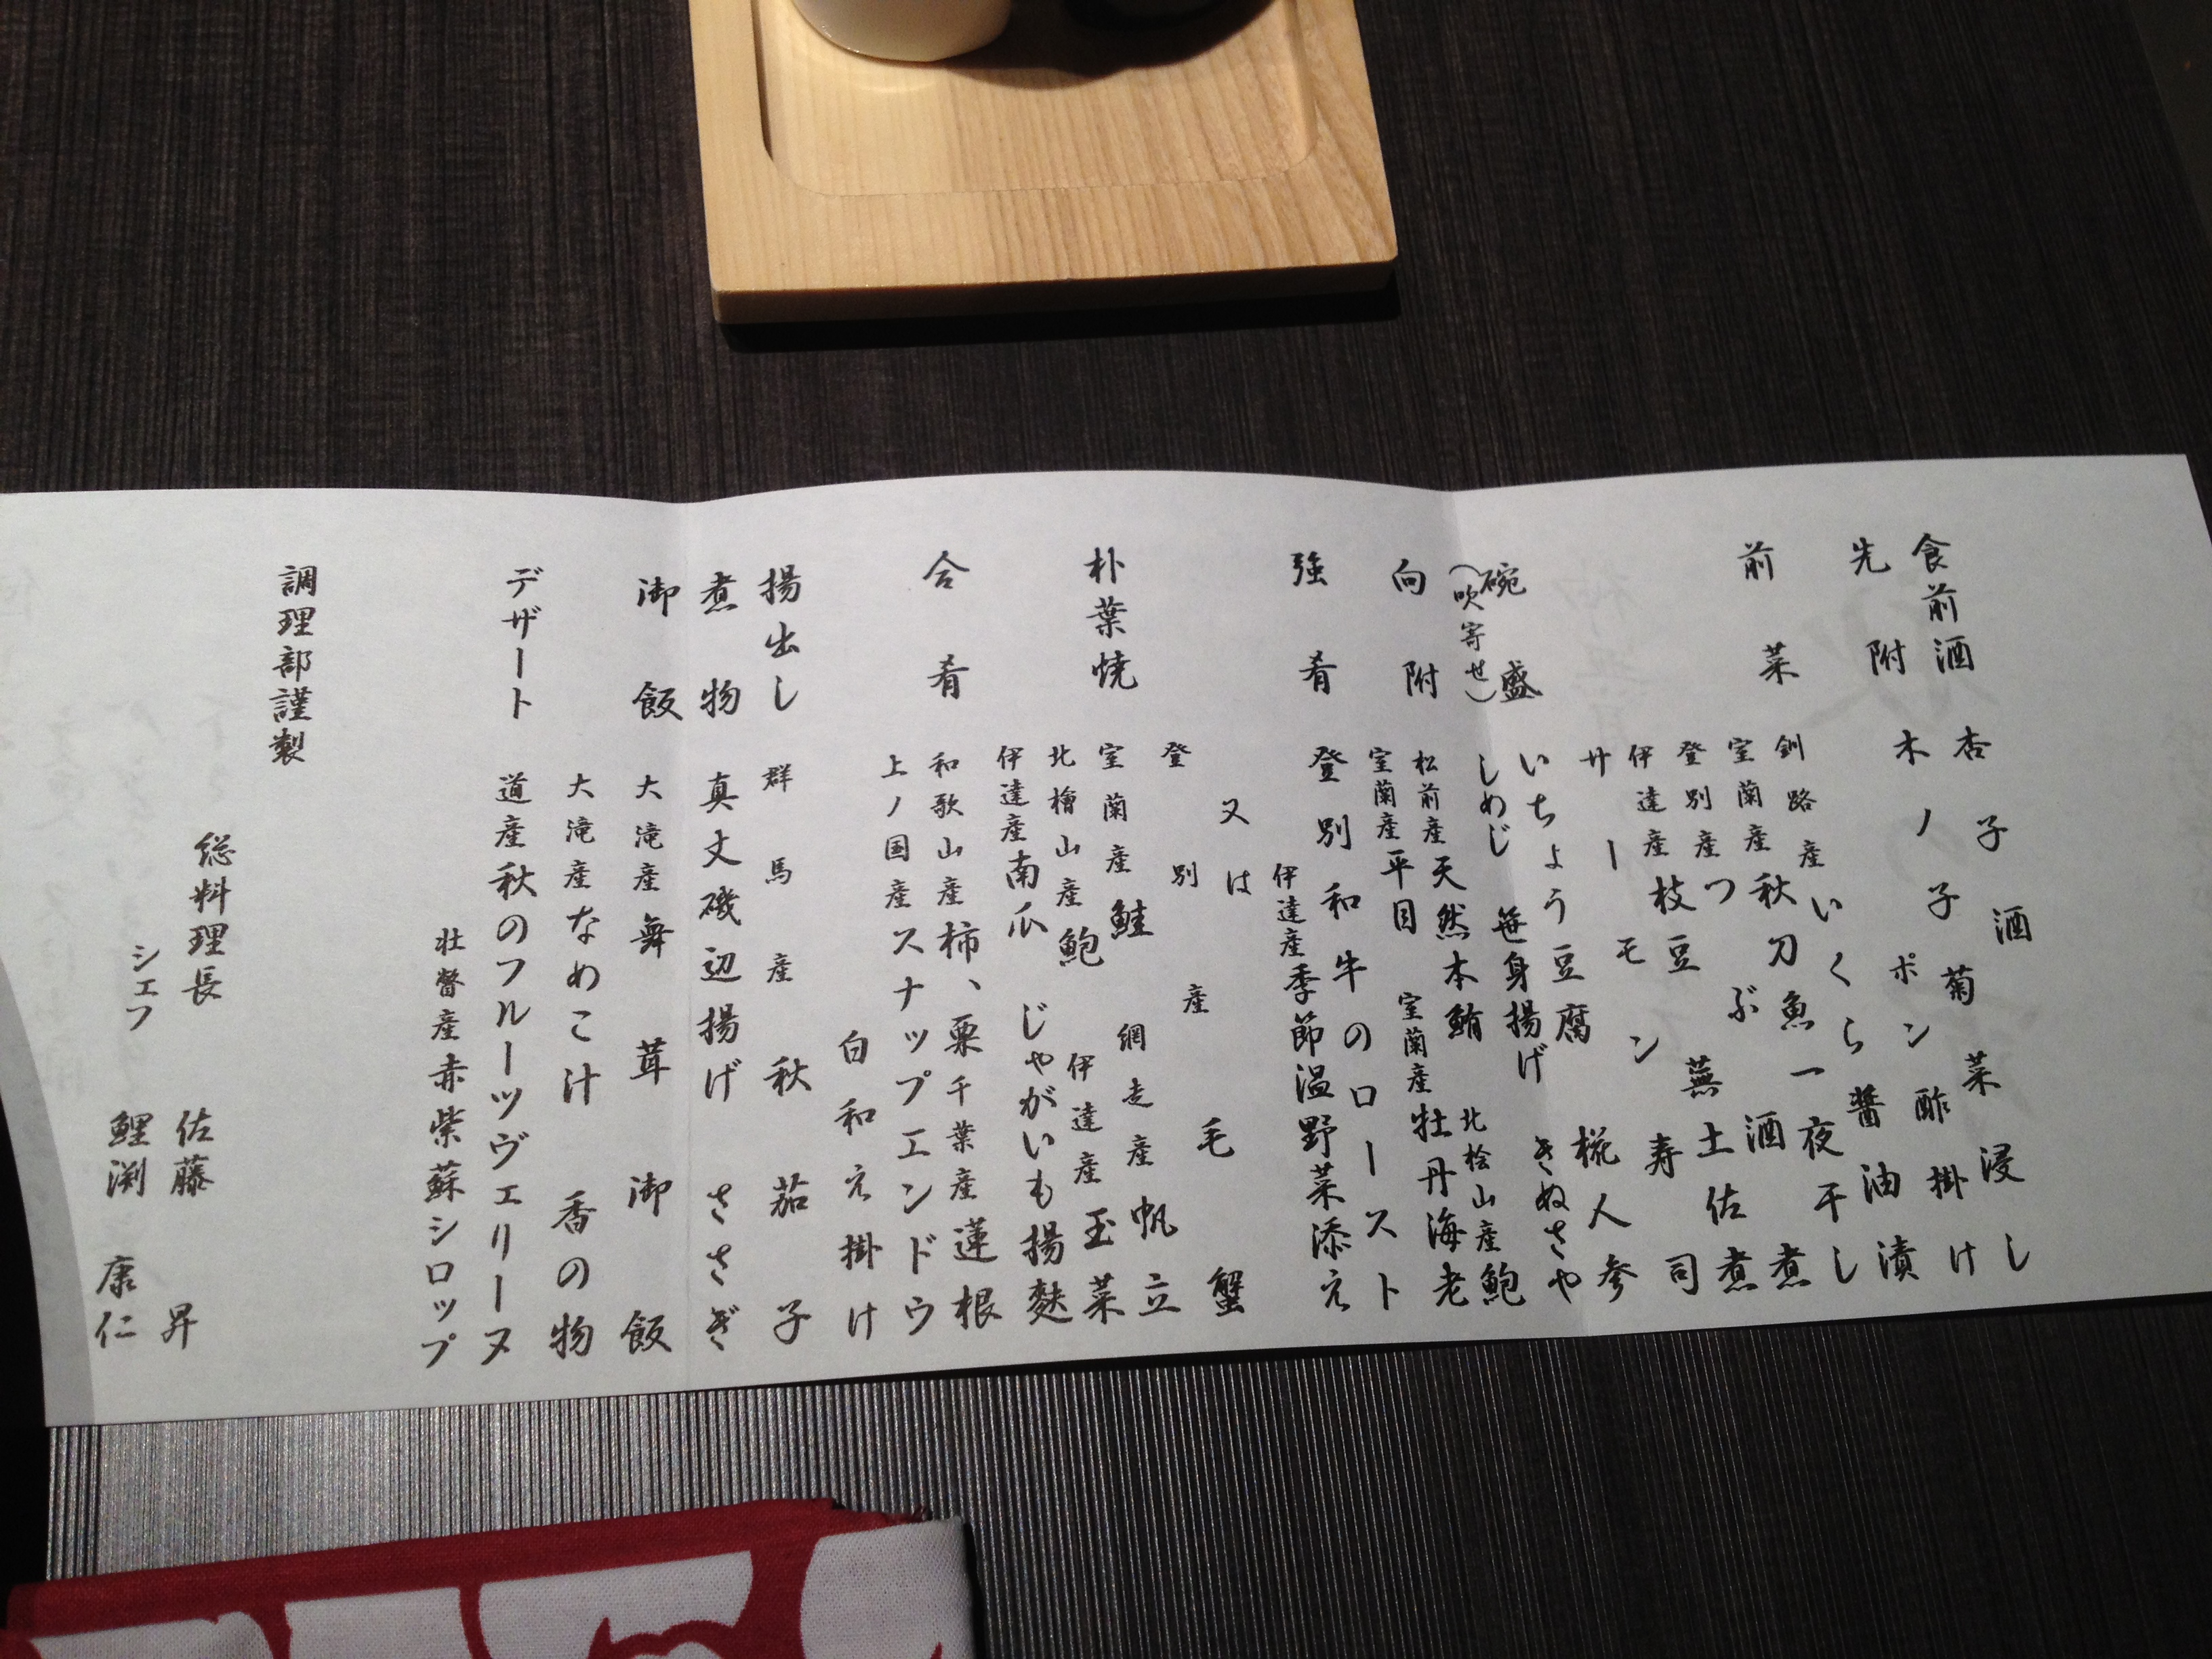 食前酒 杏子酒
先附 木ノ子 菊菜浸し
ポン酢掛け
前菜 釧路産いくら醬油漬
室蘭産秋刀魚一夜干し
登別産つぶ酒煮
伊達産枝豆 蕪土佐煮
サーモン寿司
碗盛 いちょう豆腐 椛人参
(吹寄せ) しめじ 笹身揚げ きぬさや
向附 松前産天然本鮪 北桧山産鮑
室蘭産平目 室蘭産牡丹海老
強肴 登別和牛のロースト
伊達産季節温野菜添え
又は
登別産毛蟹
朴葉焼 室蘭産鮭 網走産帆立
北檜山産鮑 伊達産玉菜
伊達産南瓜 じゃがいも揚麩
合肴 和歌山産柿、栗千葉産蓮根
上ノ国産スナップエンドウ
白和え掛け
揚出し 群馬産秋茄子
煮物 真丈磯辺揚げ ささぎ
御飯 大滝産舞茸御飯
大滝産なめこ汁 香の物
デザート 道産秋のフルーツヴェリーヌ
壮瞥産赤紫蘇シロップ
調理部謹製
総料理長 佐藤 昇
シェフ 鯉渕 康仁